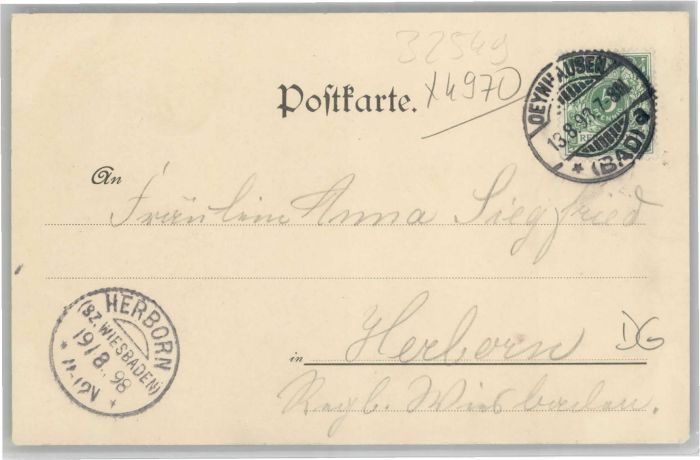 32549
Postkarte.
X4970
OEYNHAUSEN
13.8.98.7-8N.
* (BAD) a
An
Fräulein Anna Siegfried
HERBORN
(BZ. WIESBADEN)
19/8.98
* 11-12V *
in Herborn
DG
Regb. Wiesbaden.